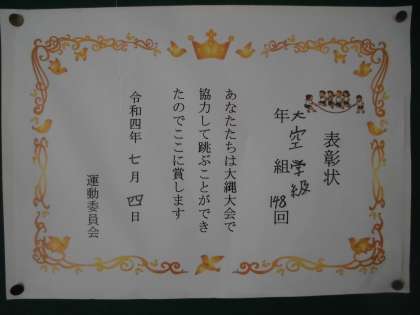 表彰状
年 組 148回
大空学級
あなたたちは大縄大会で
協力して跳ぶことができ
たのでここに賞します
令和四年 七月 四日
運動委員会